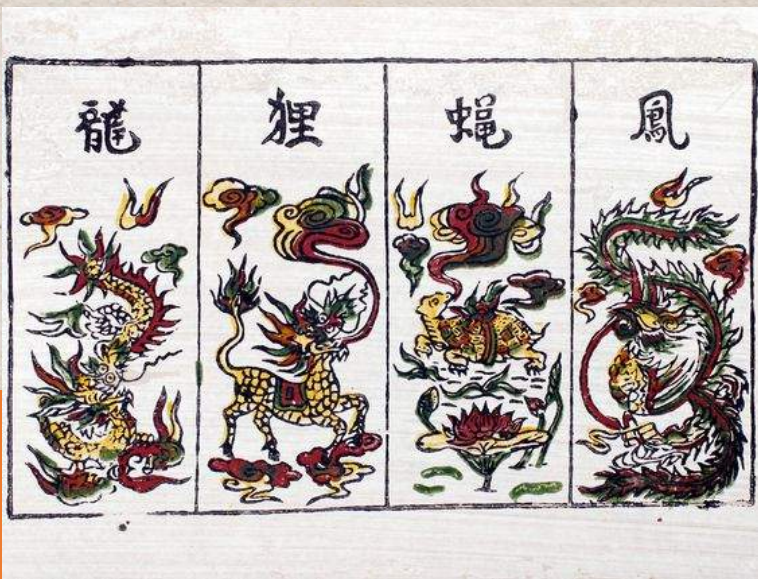 龍 狸 蝿 鳳